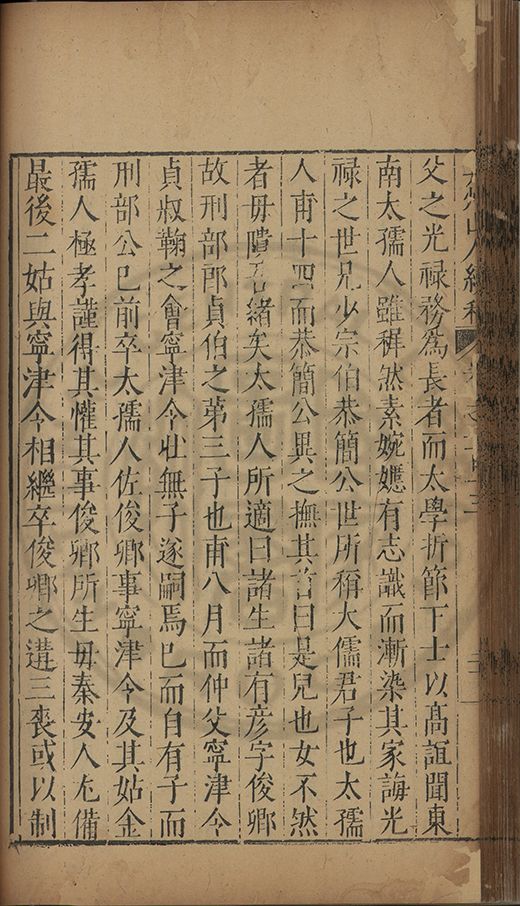 州山人續稿
父之光祿務為長者而太學折節下士以髙誼聞東
南太孺人雖稺然素婉嫕有志識而漸染其家誨光
祿之世兄少宗伯恭簡公世所稱大儒君子也太孺
人甫十四而恭簡公異之撫其首曰是兒也女不然
者毋隤吾緒矣太孺人所適曰諸生諸有彦字俊卿
故刑部郎貞伯之第三子也甫八月而仲父寧津令
貞叔鞠之會寧津令壯無子遂嗣焉已而自有子而
刑部公已前卒太孺人佐俊卿事寧津令及其姑金
孺人極孝謹得其懽其事俊卿所生毋秦安人尤備
最後二姑與寧津令相繼卒俊卿之遘三喪或以制